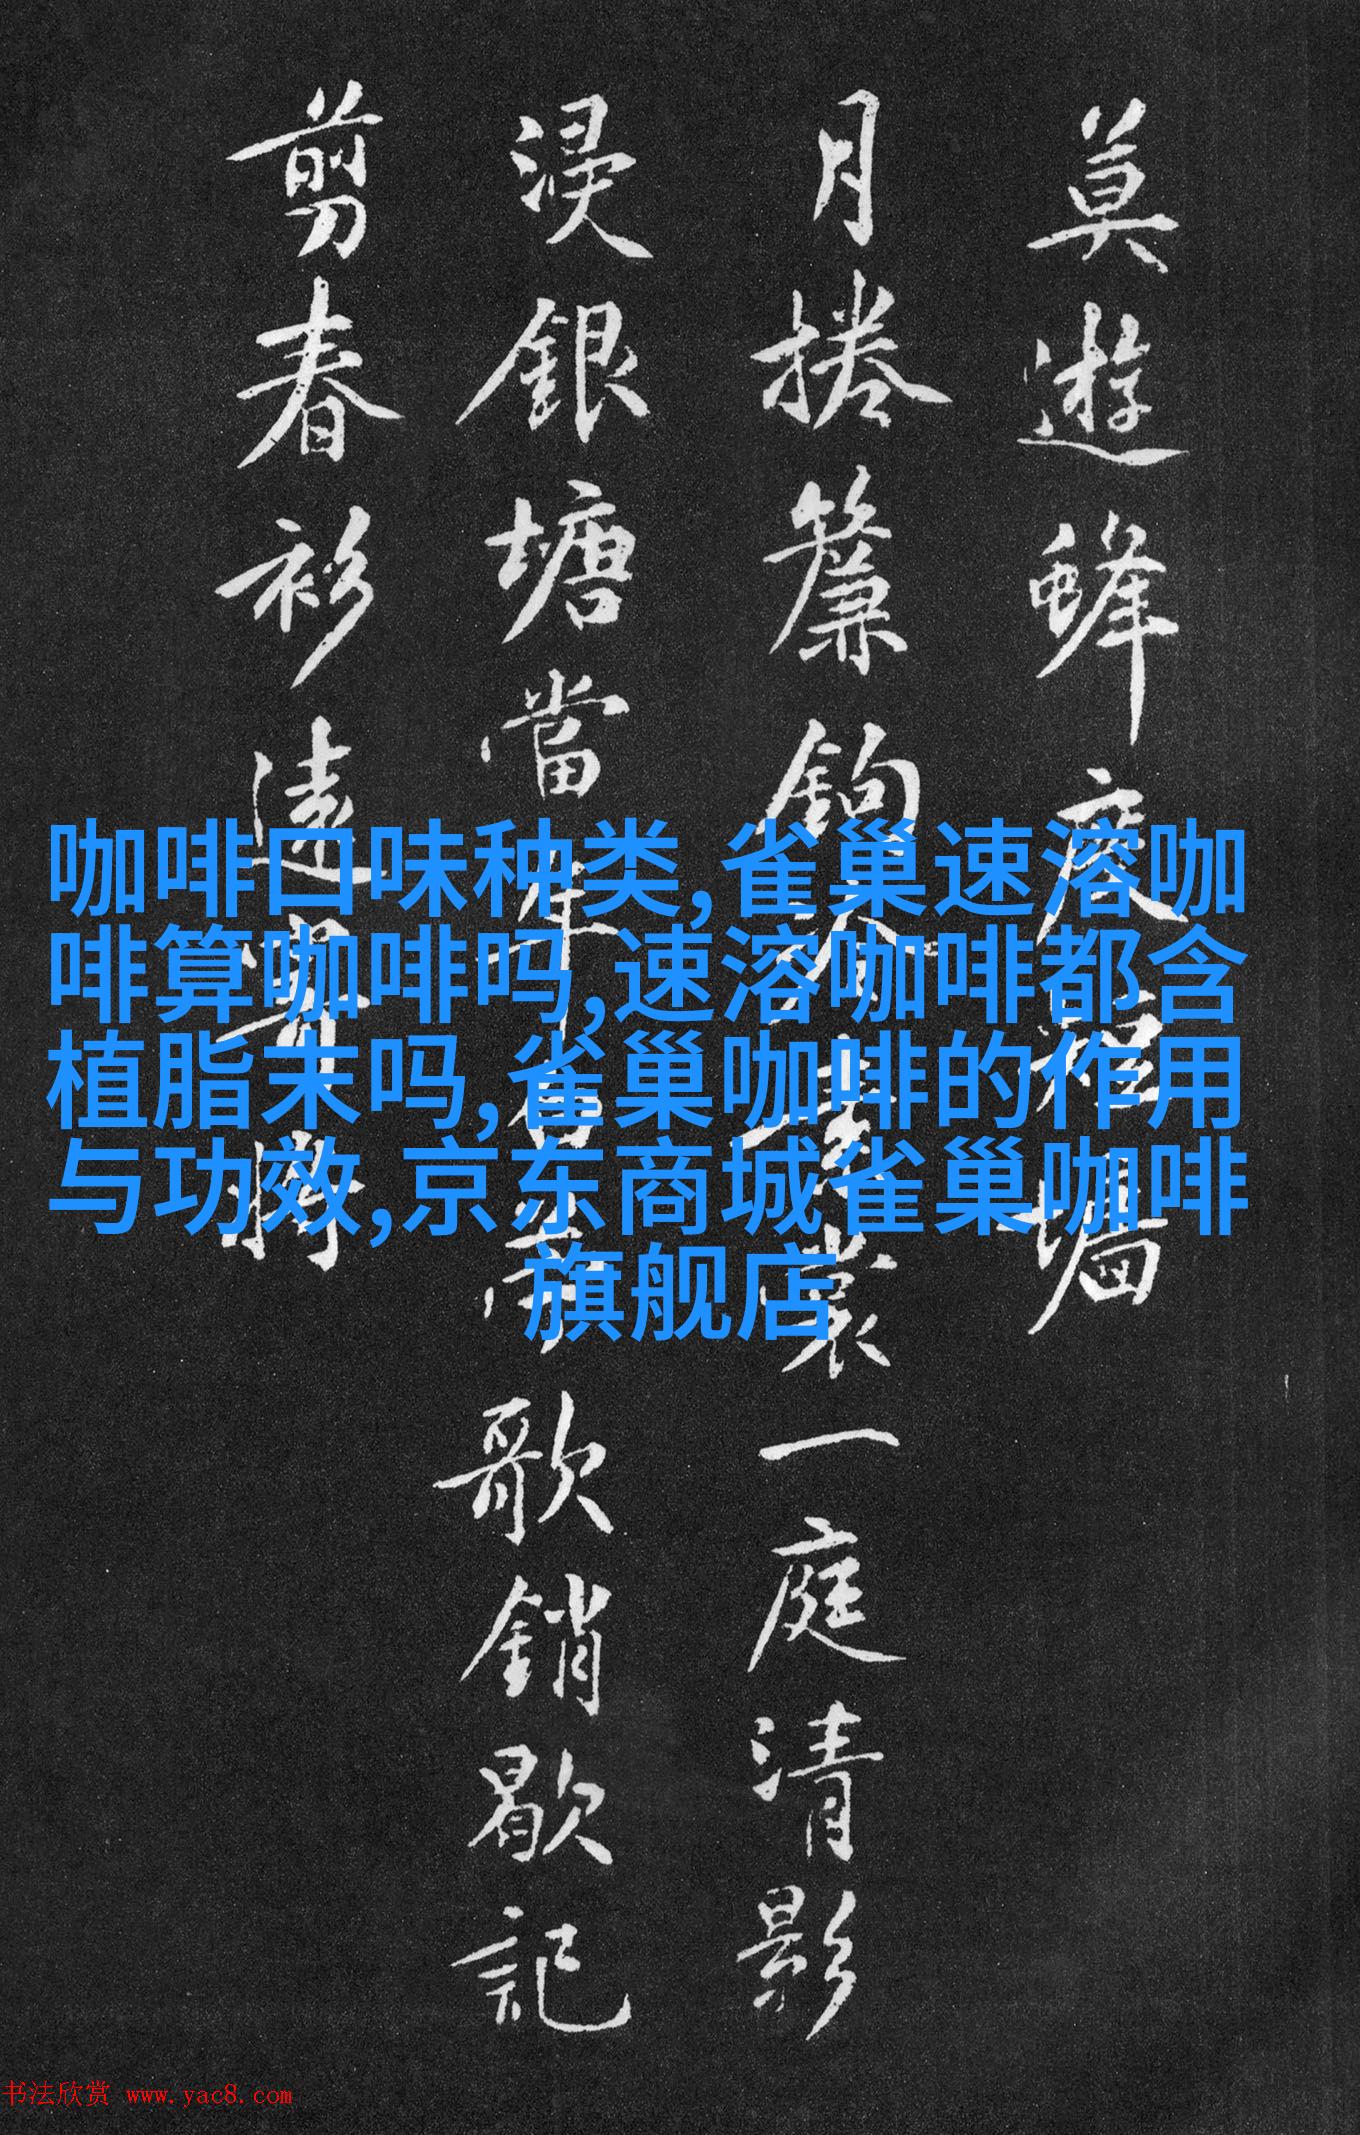 莫遊蜂度短墻
月捲簾鉤人裳一庭清影
浸銀塘當年歌銷歇記
剪春衫遠寄將
咖啡口味种类,雀巢速溶咖
啡算咖啡吗,速溶咖啡都含
植脂末吗,雀巢咖啡的作用
与功效,京东商城雀巢咖啡
旗舰店
书法欣赏 www.yac8.com